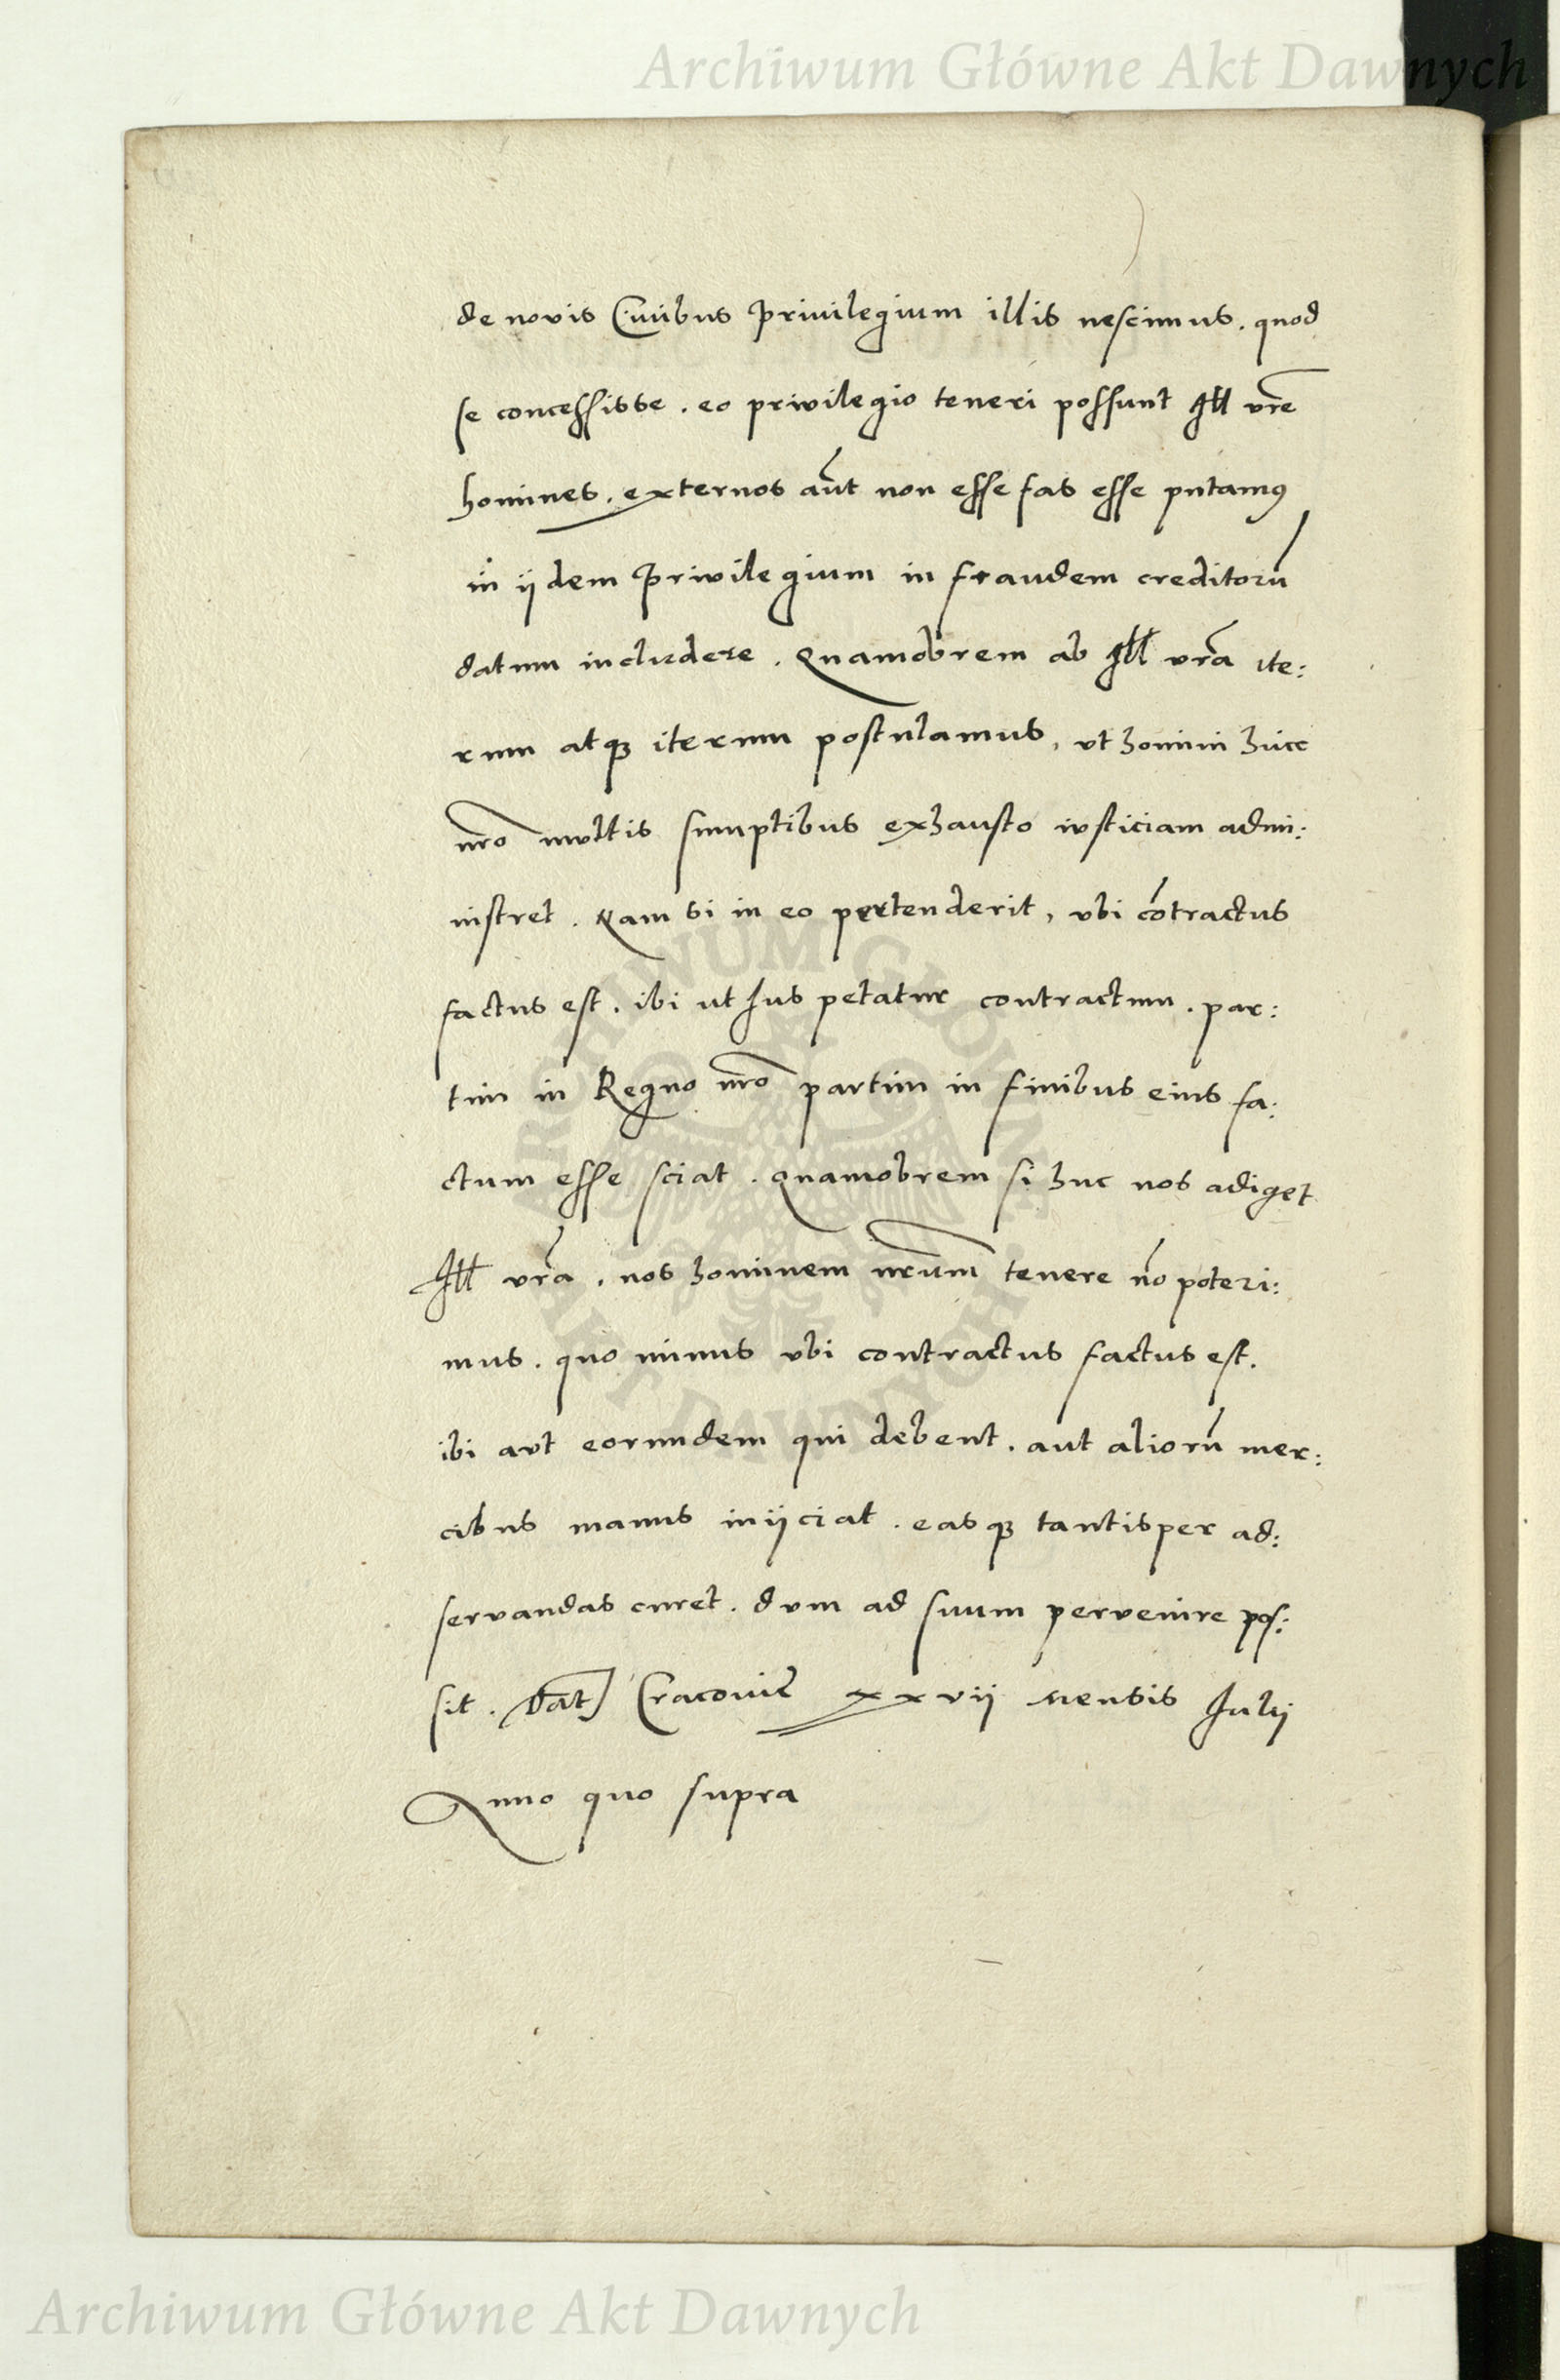 Archiwum Główne Akt Dawnych
de novis Civibus Privilegium illis nescimus . quod
se concessisse . eo privilegio teneri possunt Ill vr̃e
homines . externos aũt non esse fas esse putamꝰ
in ijdem Privilegium in fraudem creditorũ
datum includere . Quamobrem ab Ill vr̃a ite:
rum atqꝫ iterum postulamus, vt homini huic
nr̃o multis sumptibus exhausto iusticiam admi:
nistret . Nam si in eo pertenderit, vbi cõtractus
factus est . ibi ut Ius petatur contractum . par:
tim in Regno nr̃o partim in finibus eius fa:
ctum esse sciat . Quamobrem si huc nos adiget
Ill vr̃a . nos hominem nr̃um tenere nõ poteri:
mus . quo minus vbi contractus factus est .
ibi aut eorundem qui debent . aut aliorũ mer:
cibus manus inijciat . easqꝫ tantisper ad:
servandas curet . dum ad suum pervenire pos:
sit . Dat̃ Cracovie xxvij mensis Iulij
Anno quo supra
ARCHIWUM GŁÓWNE AKT DAWNYCH
Archiwum Główne Akt Dawnych